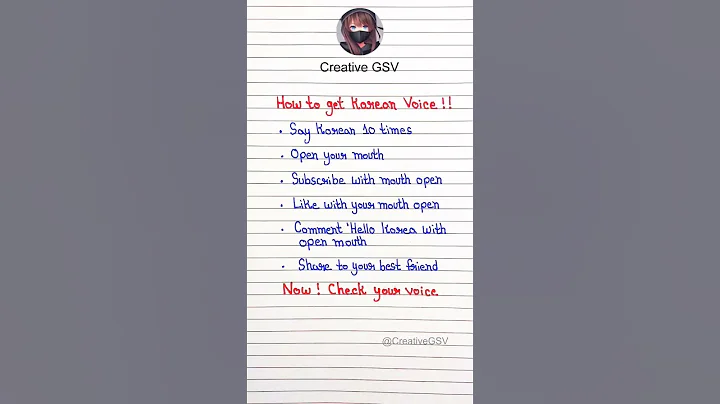 Creative GSV
How to get Korean Voice !!
• Say Korean 10 times
• Open your mouth
• Subscribe with mouth open
• Like with your mouth open
• Comment 'Hello Korea with
open mouth
• Share to your best friend
Now ! Check your voice
@CreativeGSV